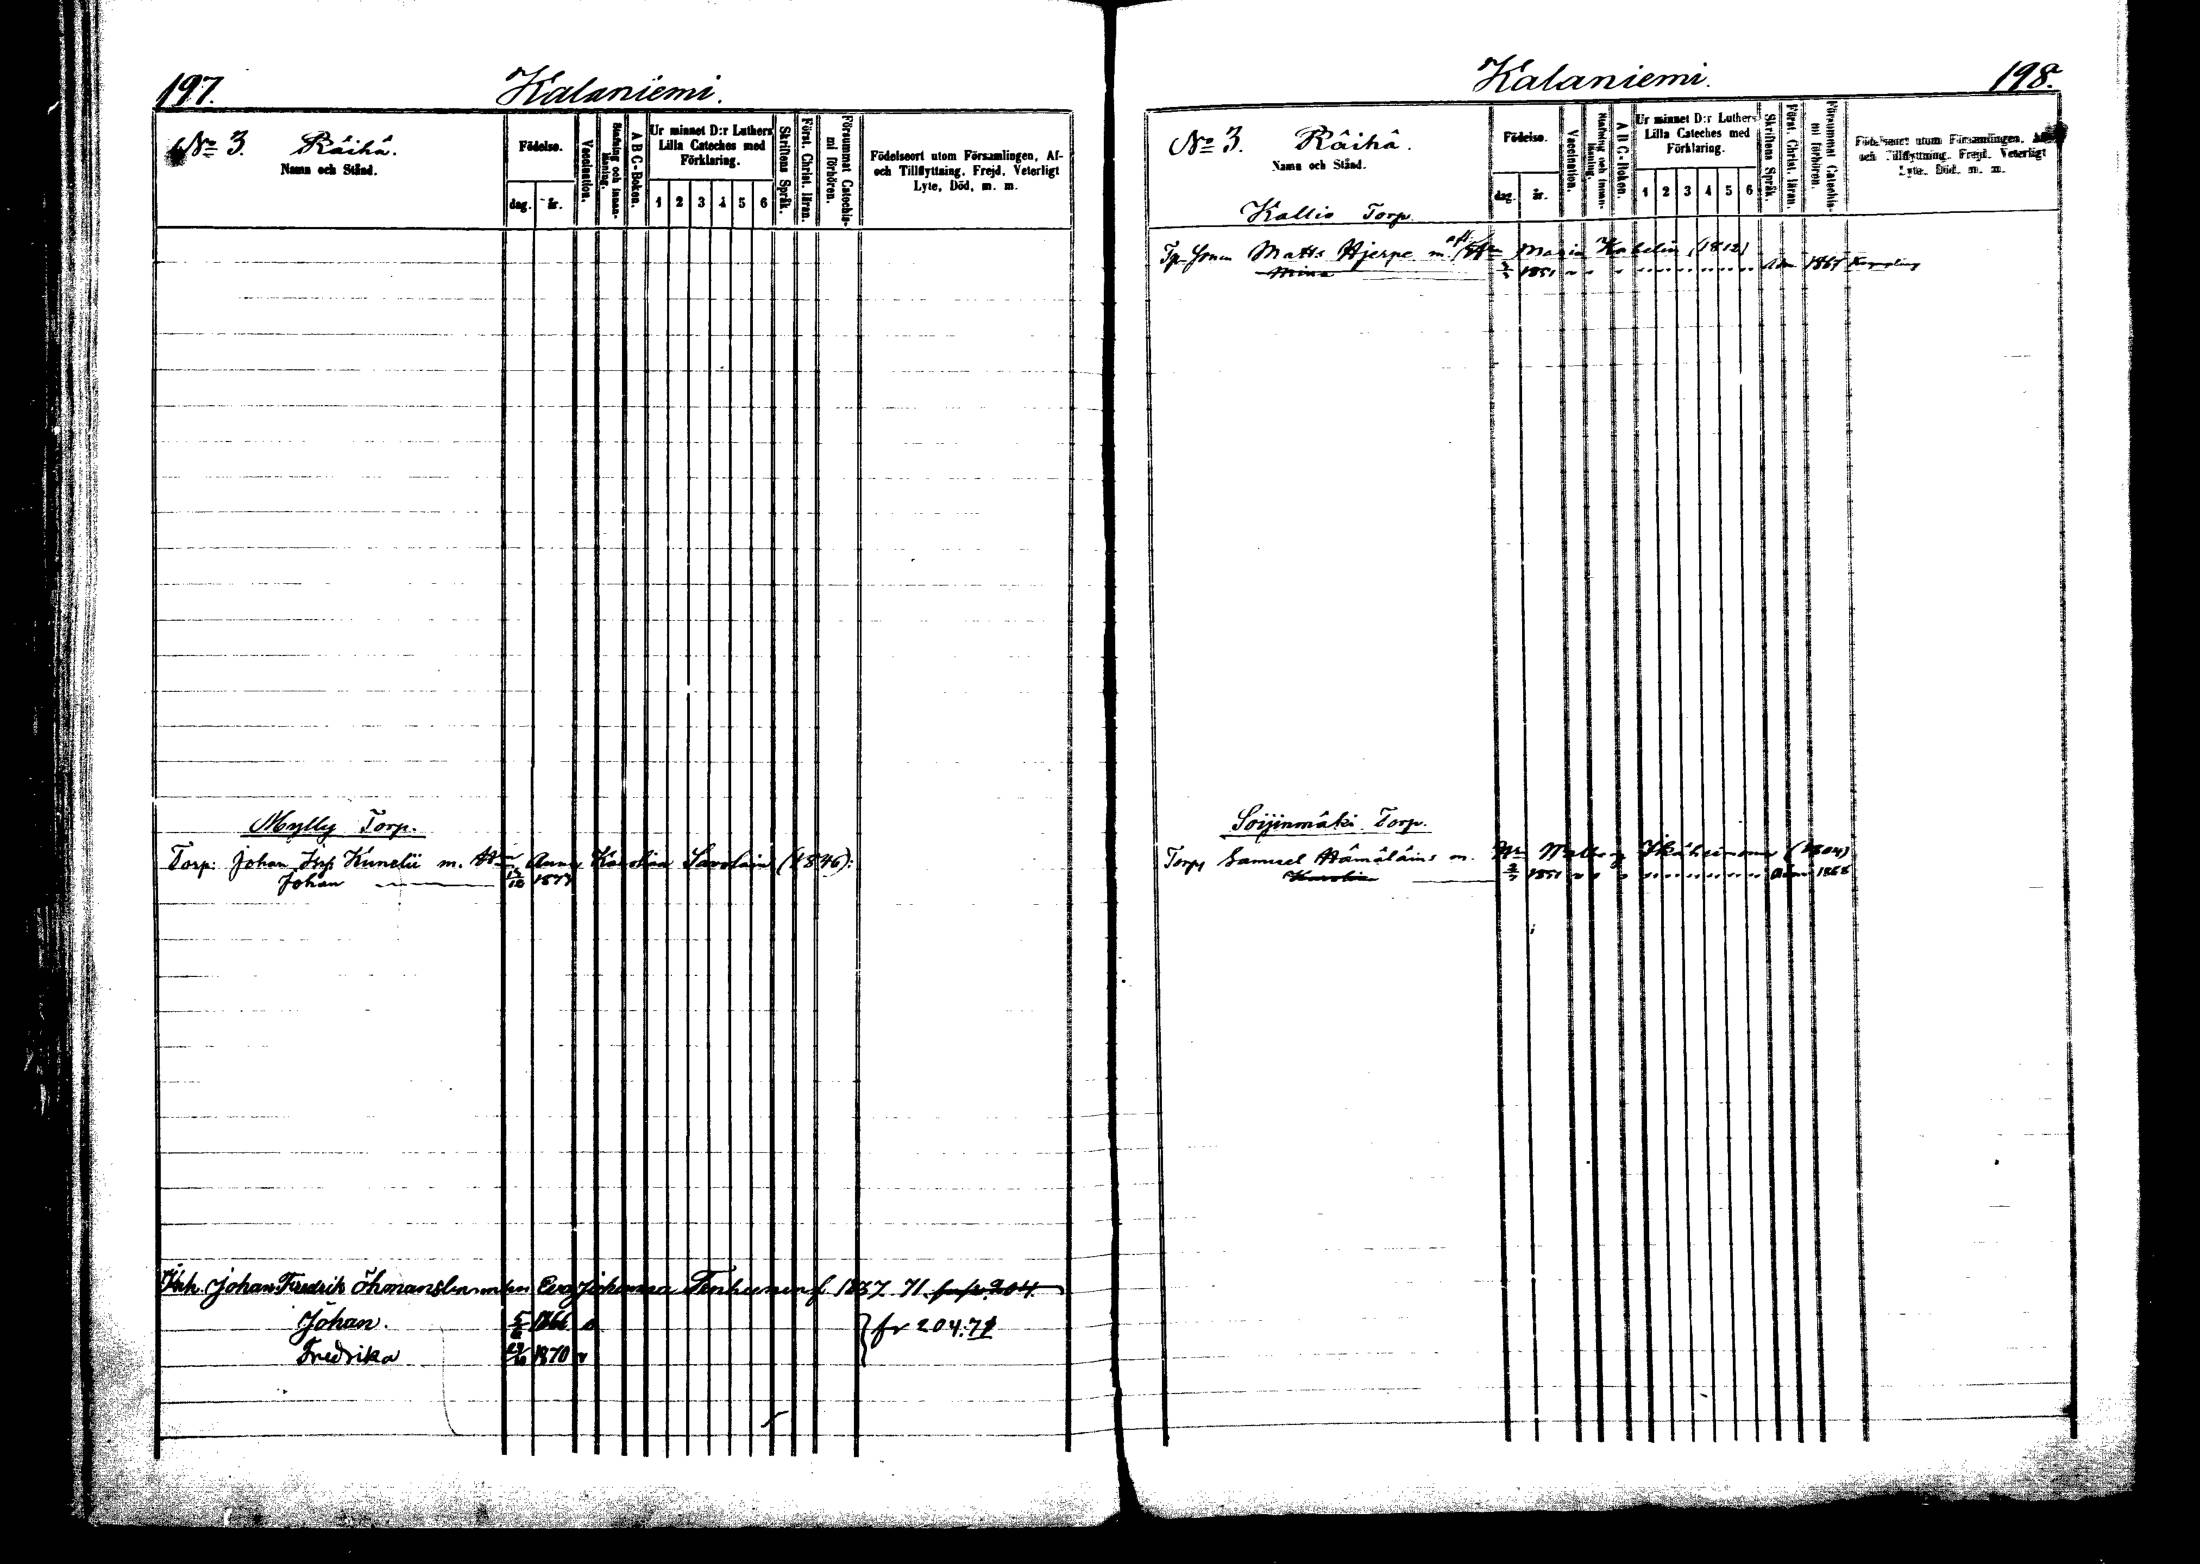 197.
Kalaniemi.
No 3. Räihä.
Namn och Stånd.
Födelse.
dag. år.
Vaccination.
Stafning och innanläsning.
A B C-Boken.
Ur minnet D:r Luthers Lilla Cateches med Förklaring.
1 2 3 4 5 6
Skriftens Språk.
Först. Christ. läran.
Försummat Catechismi förhören.
Födelseort utom Församlingen, Af- och Tillflyttning, Frejd, Veterligt Lyte, Död, m. m.
Mylly Torp.
Torp: Johan Kunelii m. Hu Anna Karolina Savolain (1846):
Johan 1877
Inh. Johan Fredrik Öhman Eva Johanna Tenhunen f 1837 71 204.
Johan. 5/6 1866 v
Fredrika 1870 v
fr 204.71
Kalaniemi.
198.
No 3. Räihä.
Namn och Stånd.
Födelse.
dag. år.
Vaccination.
Stafning och innanläsning.
A B C-Boken.
Ur minnet D:r Luthers Lilla Cateches med Förklaring.
1 2 3 4 5 6
Skriftens Språk.
Först. Christ. läran.
Försummat Catechismi förhören.
Födelseort utom Församlingen, Af- och Tillflyttning, Frejd, Veterligt Lyte, Död, m. m.
Kallio Torp.
Matts Hjerpe m. Maria Kabelin (1812)
Mina 1851 Adm 1867
Soijinmäki Torp.
Torp Samuel Hämäläin: m. Hu Walborg Ikäheimonen (1804)
Karolina 2/7 1851 Adm 1868